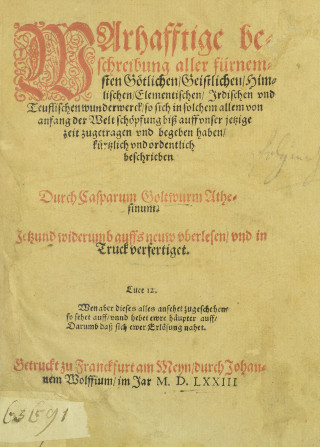 WArhafftige be-
schreibung aller fürnem-
sten Götlichen/Geistlichen/Him-
lischen/Elementischen/ Irdischen vnd
Teuflischen wunderwerck/so sich in solchem allem von
anfang der Welt schöpfung biß auff vnser jetzige
zeit zugetragen vnd begeben haben/
kürtzlich vnd ordentlich
beschrieben
Durch Casparum Goltwurm Athe-
sinum.
Jetzund widerumb auffs neuw vberlesen/ vnd in
Truck verfertiget.
Luce 12.
Wen aber dieses alles anfehet zugeschehen/
so sehet auff/vnnd hebet ewre häupter auff/
Darumb daß sich ewer Erlösung nahet.
Getruckt zu Franckfurt am Meyn/durch Johan-
nem Wolffium/im Jar M. D. LXXIII